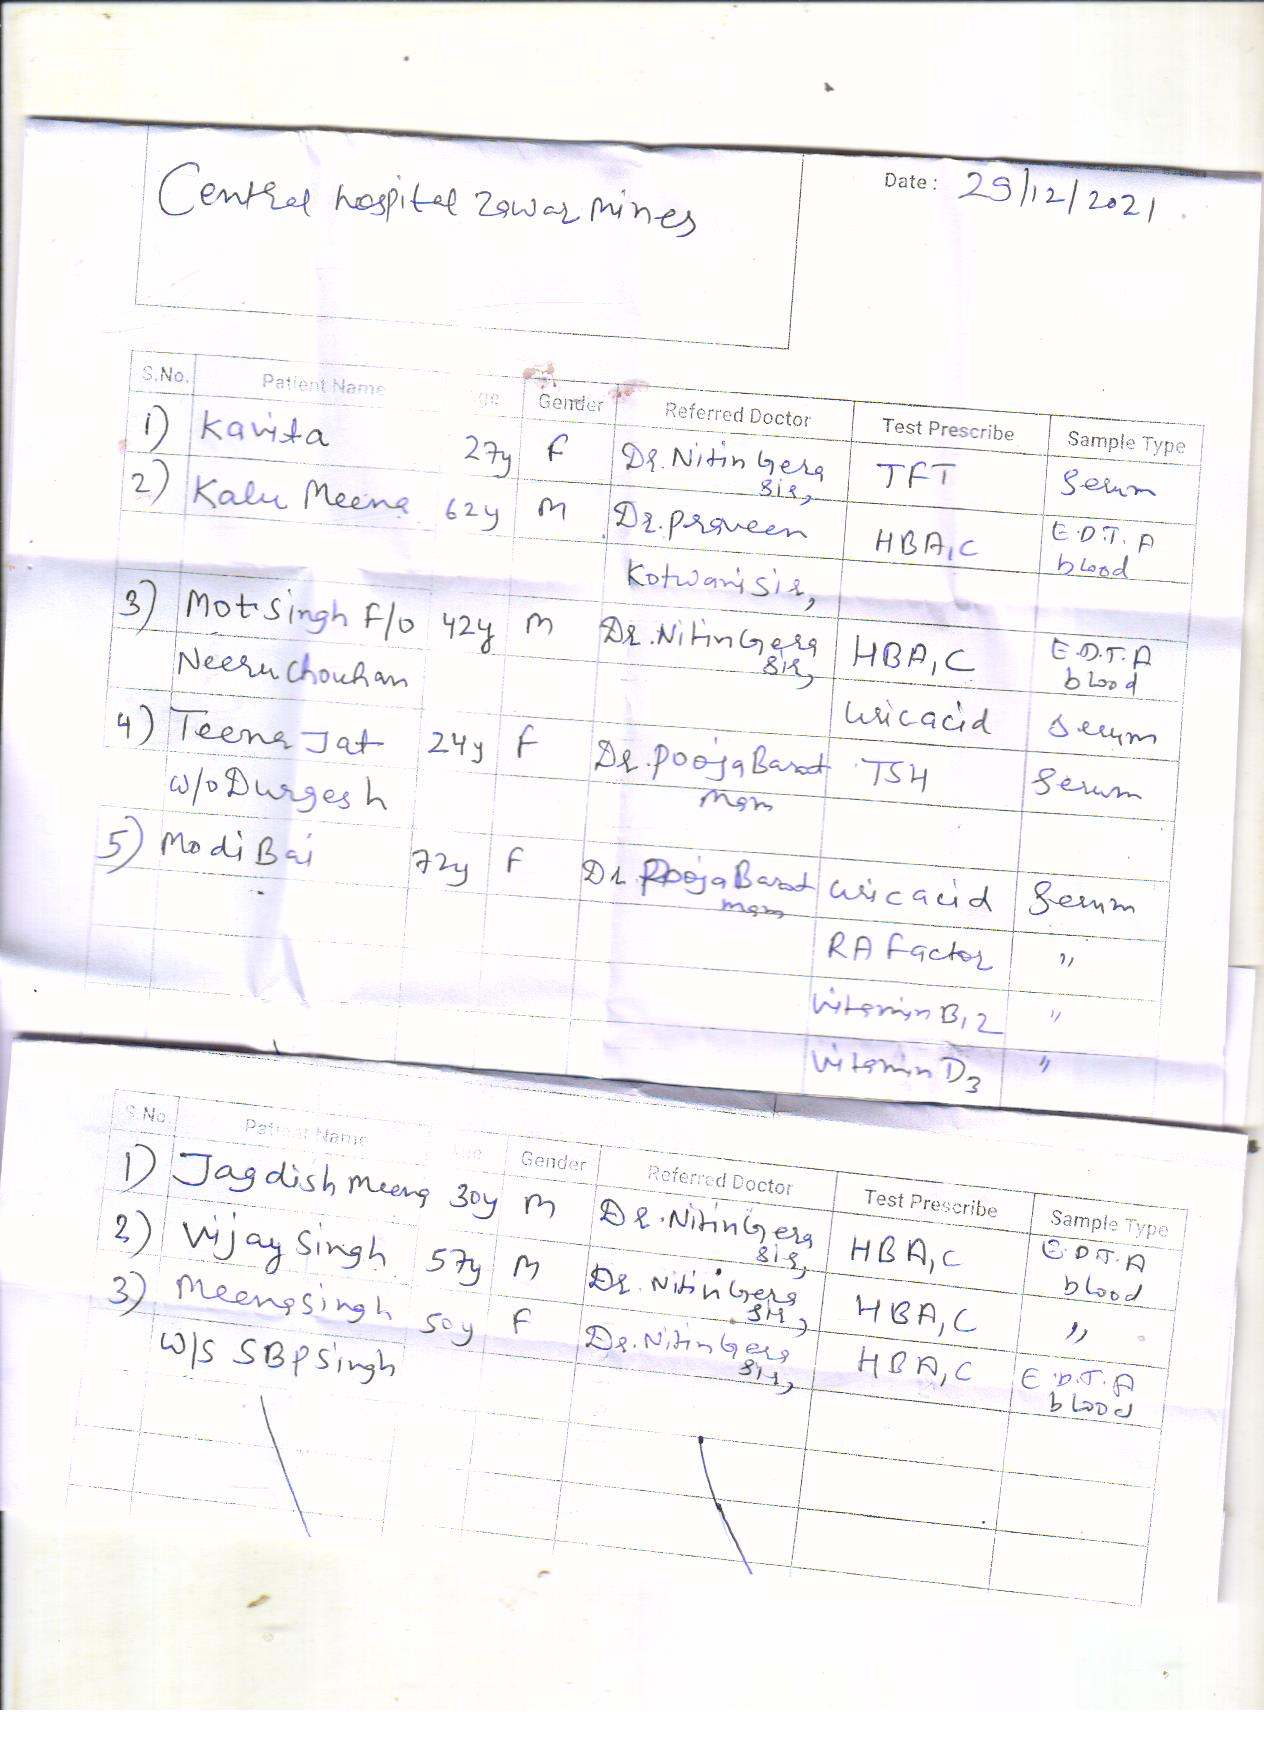 Central hospital Zawar mines
Date : 29/12/2021
S.No. Patient Name Age Gender Referred Doctor Test Prescribe Sample Type
1) Kavita 27y F Dr. Nitin Gera TFT Serum
Sir,
2) Kalu Meena 62y M Dr. Praveen HBA1C E.D.T.A
blood
Kotwani Sir,
3) Moti Singh F/o 42y M Dr. Nitin Gera HBA1C E.D.T.A
Sir, blood
Neeru Chouhan
Uric acid Serum
4) Teena Jat 24y F Dr. Pooja Barot TSH Serum
mam
W/o Durgesh
5) Modi Bai 72y F Dr. Pooja Barot Uric acid Serum
mam
RA Factor "
Vitamin B12 "
Vitamin D3 "
S.No. Patient Name Age Gender Referred Doctor Test Prescribe Sample Type
1) Jagdish Meena 30y M Dr. Nitin Gera HBA1C E.D.T.A
Sir, blood
2) Vijay Singh 57y M Dr. Nitin Gera HBA1C "
Sir,
3) Meena Singh 50y F Dr. Nitin Gera HBA1C E.D.T.A
Sir, blood
W/S SBP Singh